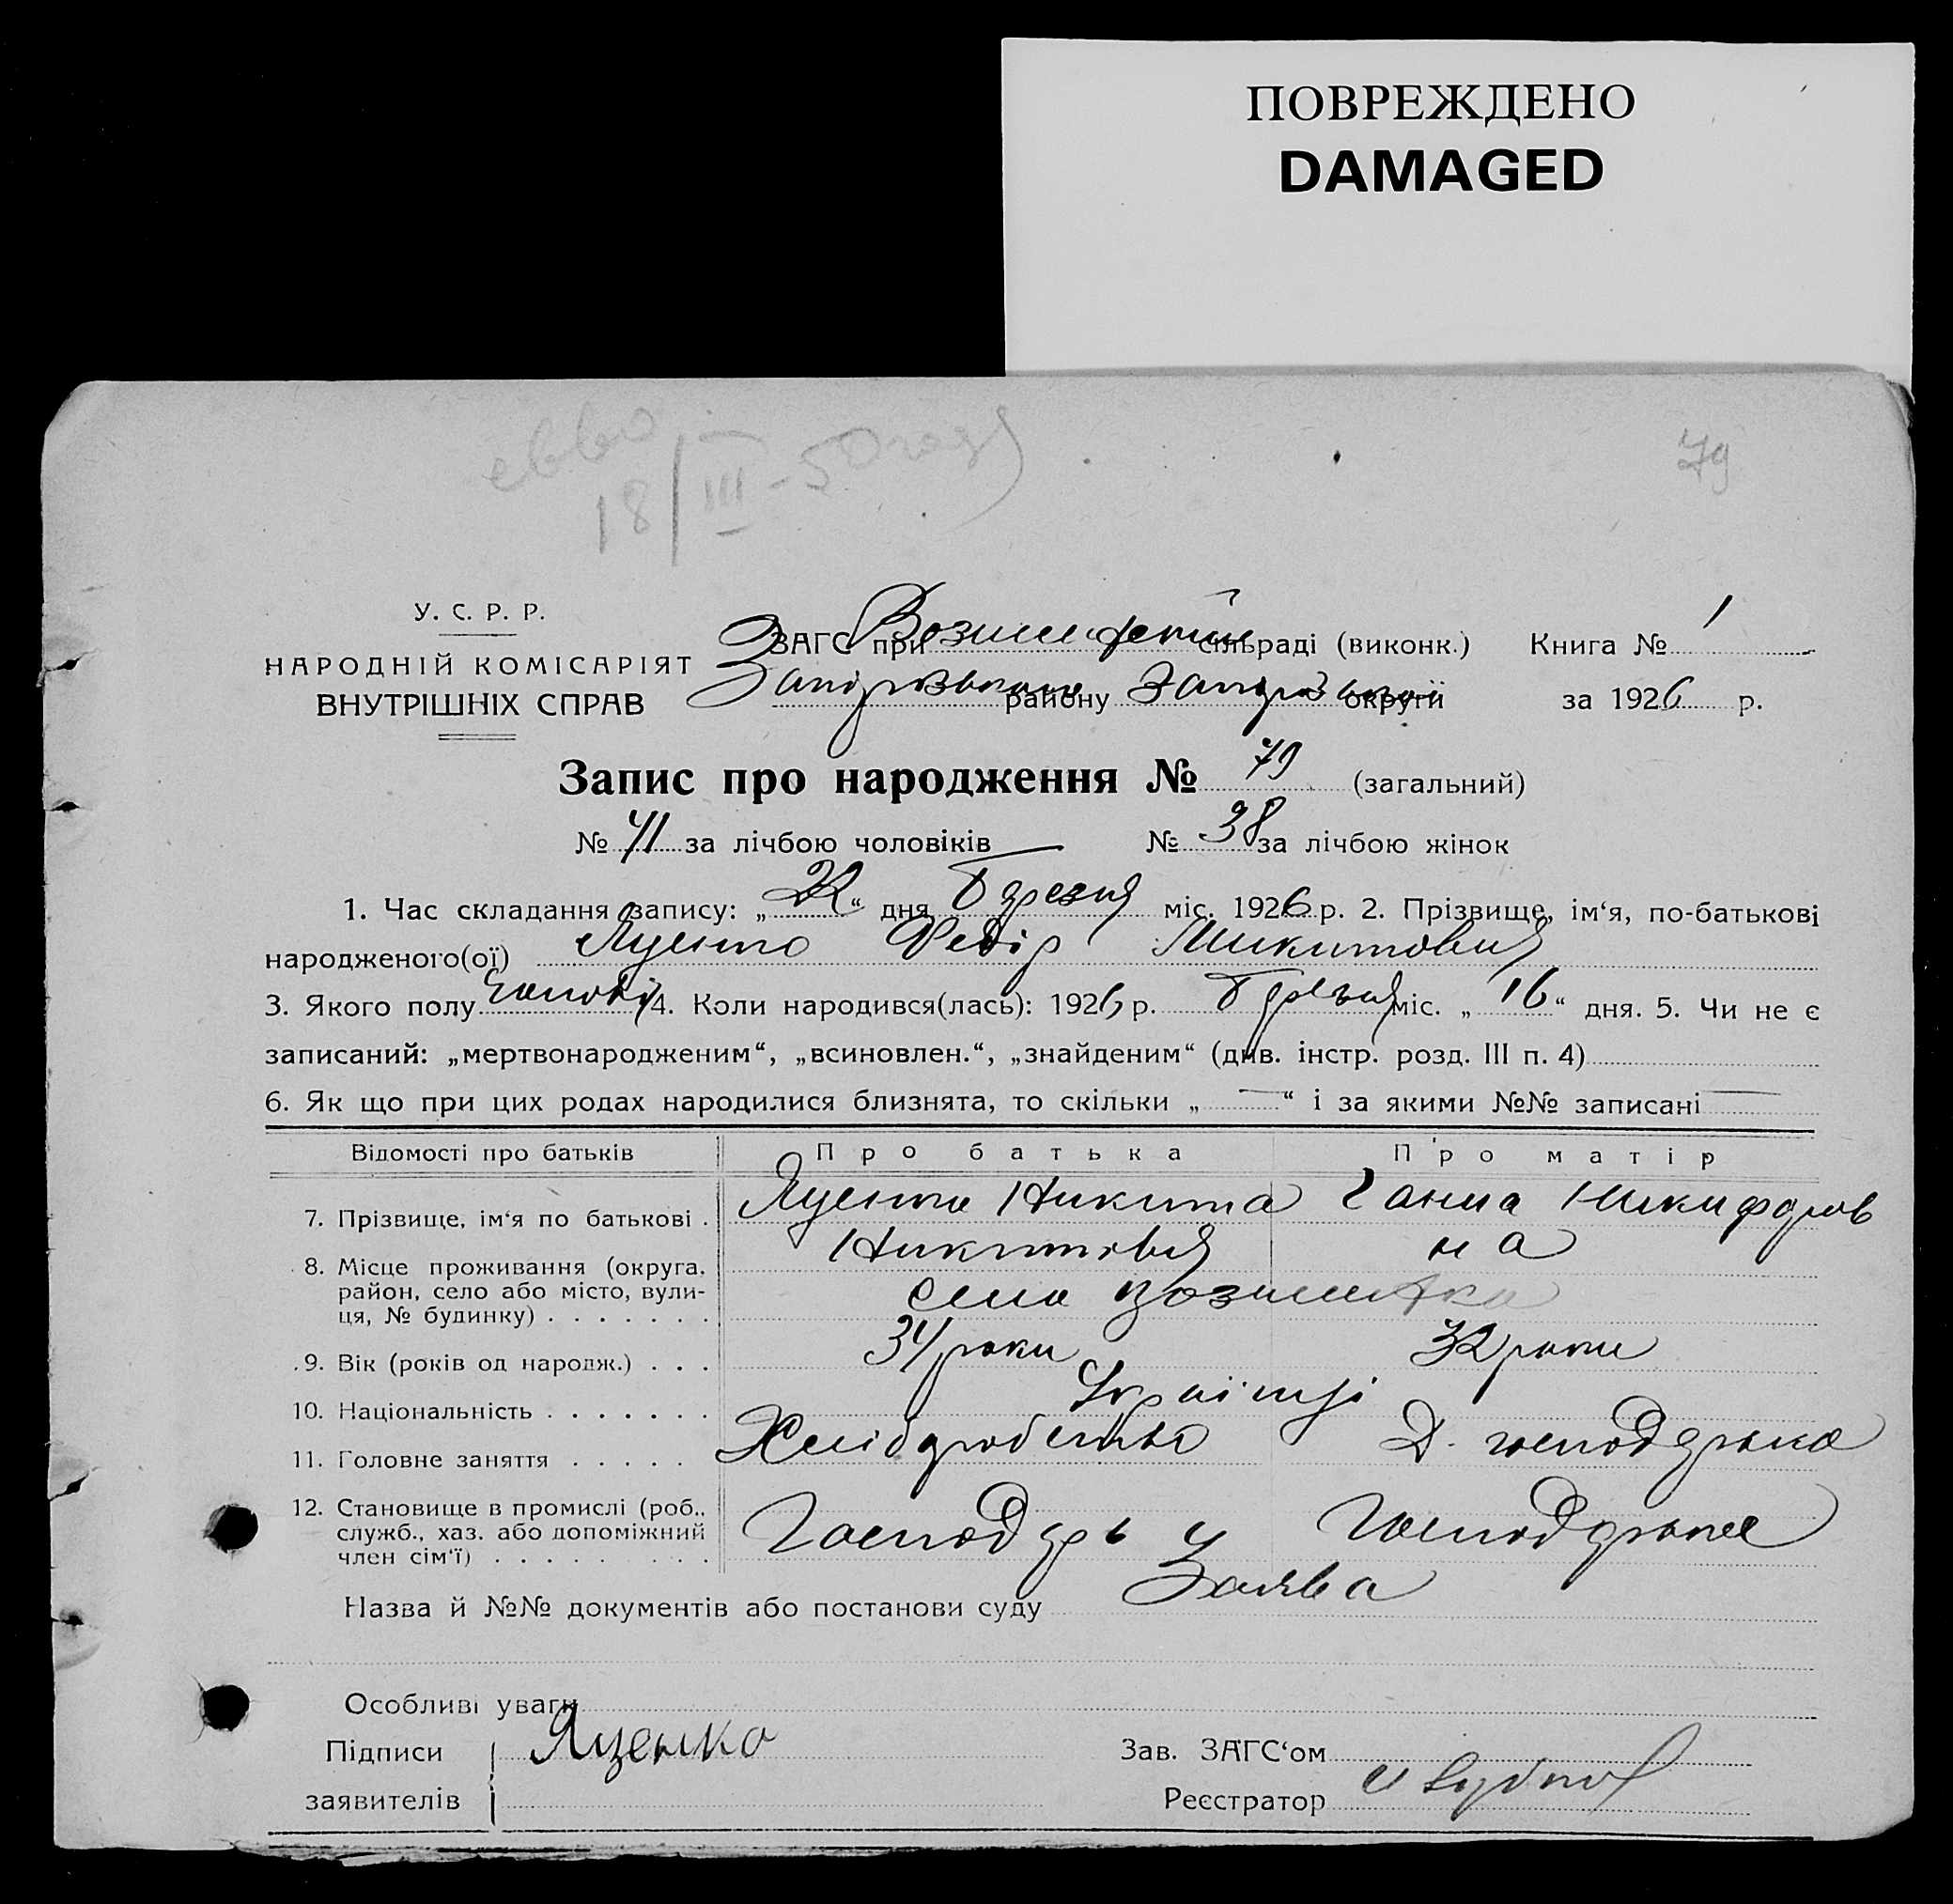 ПОВРЕЖДЕНО
DAMAGED
18/III - 50
79
У. С. Р. Р.
НАРОДНІЙ КОМІСАРІЯТ
ВНУТРІШНІХ СПРАВ
ЗАГС при сільраді (виконк.) Книга № 1
району округи за 1926 р.
Запис про народження № 79 (загальний)
№ 41 за лічбою чоловіків № 38 за лічбою жінок
1. Час складання запису: „ “ дня Березня міс. 1926 р. 2. Прізвище, ім‘я, по-батькові
народженого(ої) Яценко Федір Микитович
3. Якого полу 4. Коли народився(лась): 1926 р. Березня міс. „16“ дня. 5. Чи не є
записаний: „мертвонародженим“, „всиновлен.“, „знайденим“ (див. інстр. розд. III п. 4)
6. Як що при цих родах народилися близнята, то скільки „—“ і за якими №№ записані —
Відомості про батьків Про батька Про матір
7. Прізвище, ім‘я по батькові . Яценко Никита Ганна Никифоров
Никитович на
8. Місце проживання (округа,
район, село або місто, вули-
ця, № будинку) . . . . . . . село
9. Вік (років од народж.) . . . 34 роки 32 роки
10. Національність . . . . . . . Українці
11. Головне заняття . . . . . Хліборобство Д. господарка
12. Становище в промислі (роб.,
служб., хаз. або допоміжний
член сім‘ї) . . . . . . . . Господарь Господарка
Назва й №№ документів або постанови суду Заява
Особливі уваги
Підписи Яценко Зав. ЗАГС‘ом
заявителів Реєстратор